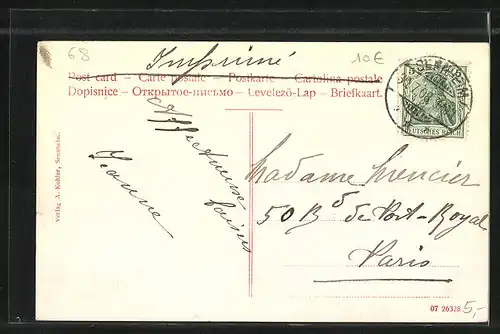 68
10€
Imprimé
Post card — Carte postale — Postkarte — Cartolina postale
Dopisnice — Открытое-письмо — Levelező-Lap — Briefkaart.
DEUTSCHES REICH
Affectueux
baisers
Jeanne
Madame Mercier
50 Bd de Port-Royal
Paris
Verlag A. Kohler,
07 26328
5,-